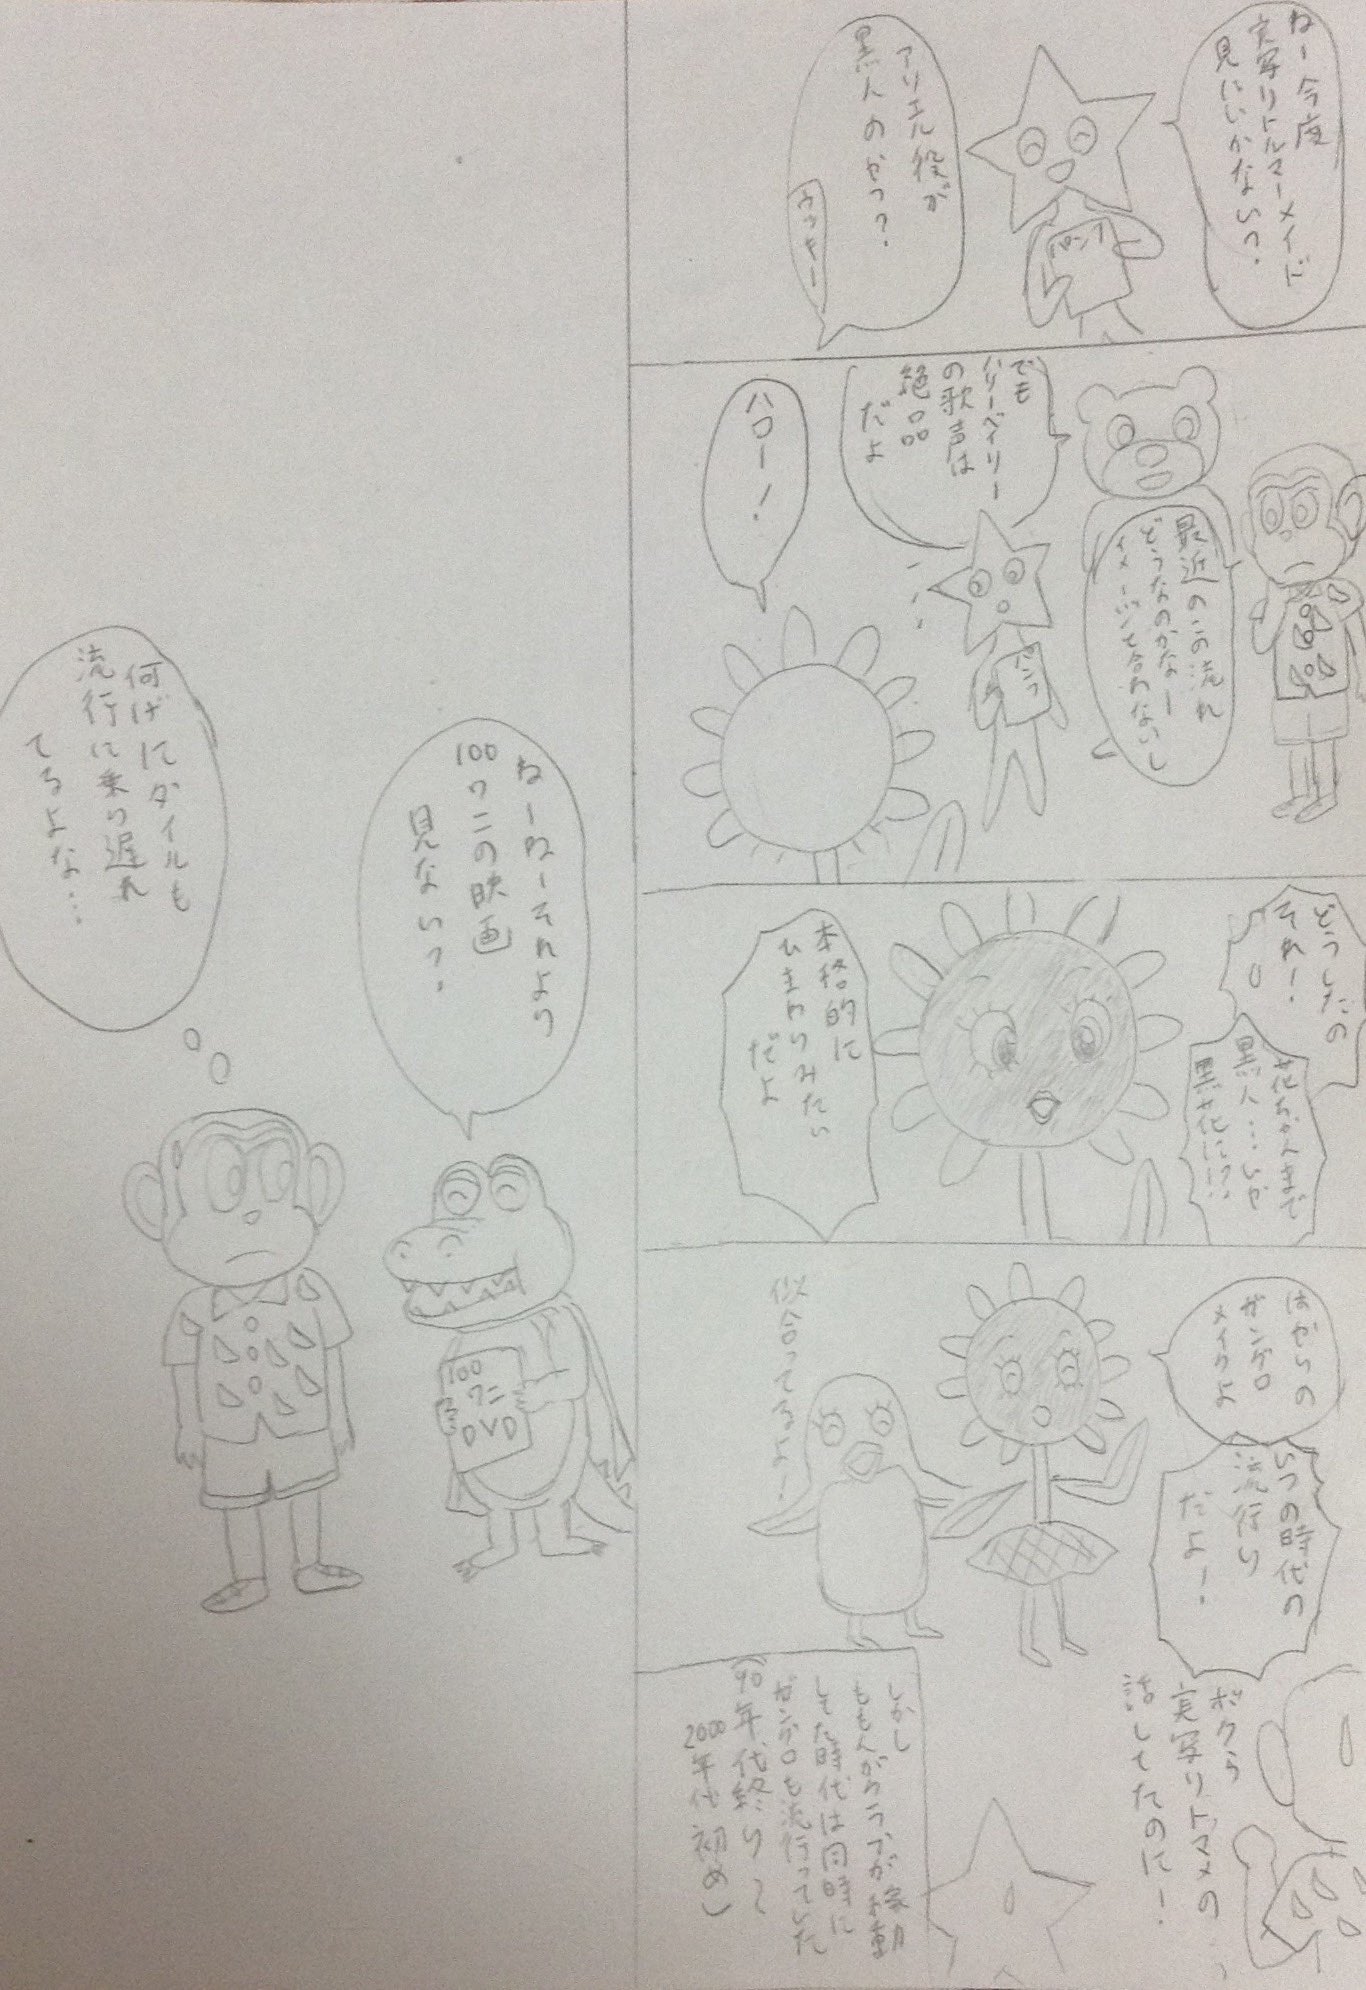 ねー今度
実写リトルマーメイド
見にいかないっ?
アリエル役が
黒人のやつ?
ウッキー
でも
ハリーベイリー
の歌声は
絶品
だよ
最近のこの流れ
どうなのかなー
イメージと合わないし
ハロー!
どうしたの
それ!
花ちゃんまで
黒人…いや
黒花に!?
本格的に
ひまわりみたい
だよ
はやりの
ガングロ
メイクよ
いつの時代の
流行り
だよー!
似合ってるよ!
ボクら
実写リトマメの
話してたのに!
しかし
ももんがクラブが
してた時代は同時に
ガングロも流行っていた
(90年代終り〜
2000年代初め)
ねーねーそれより
100ワニの映画
見ないっ?
100
ワニ
DVD
何げにダイルも
流行に乗り遅れ
てるよな…